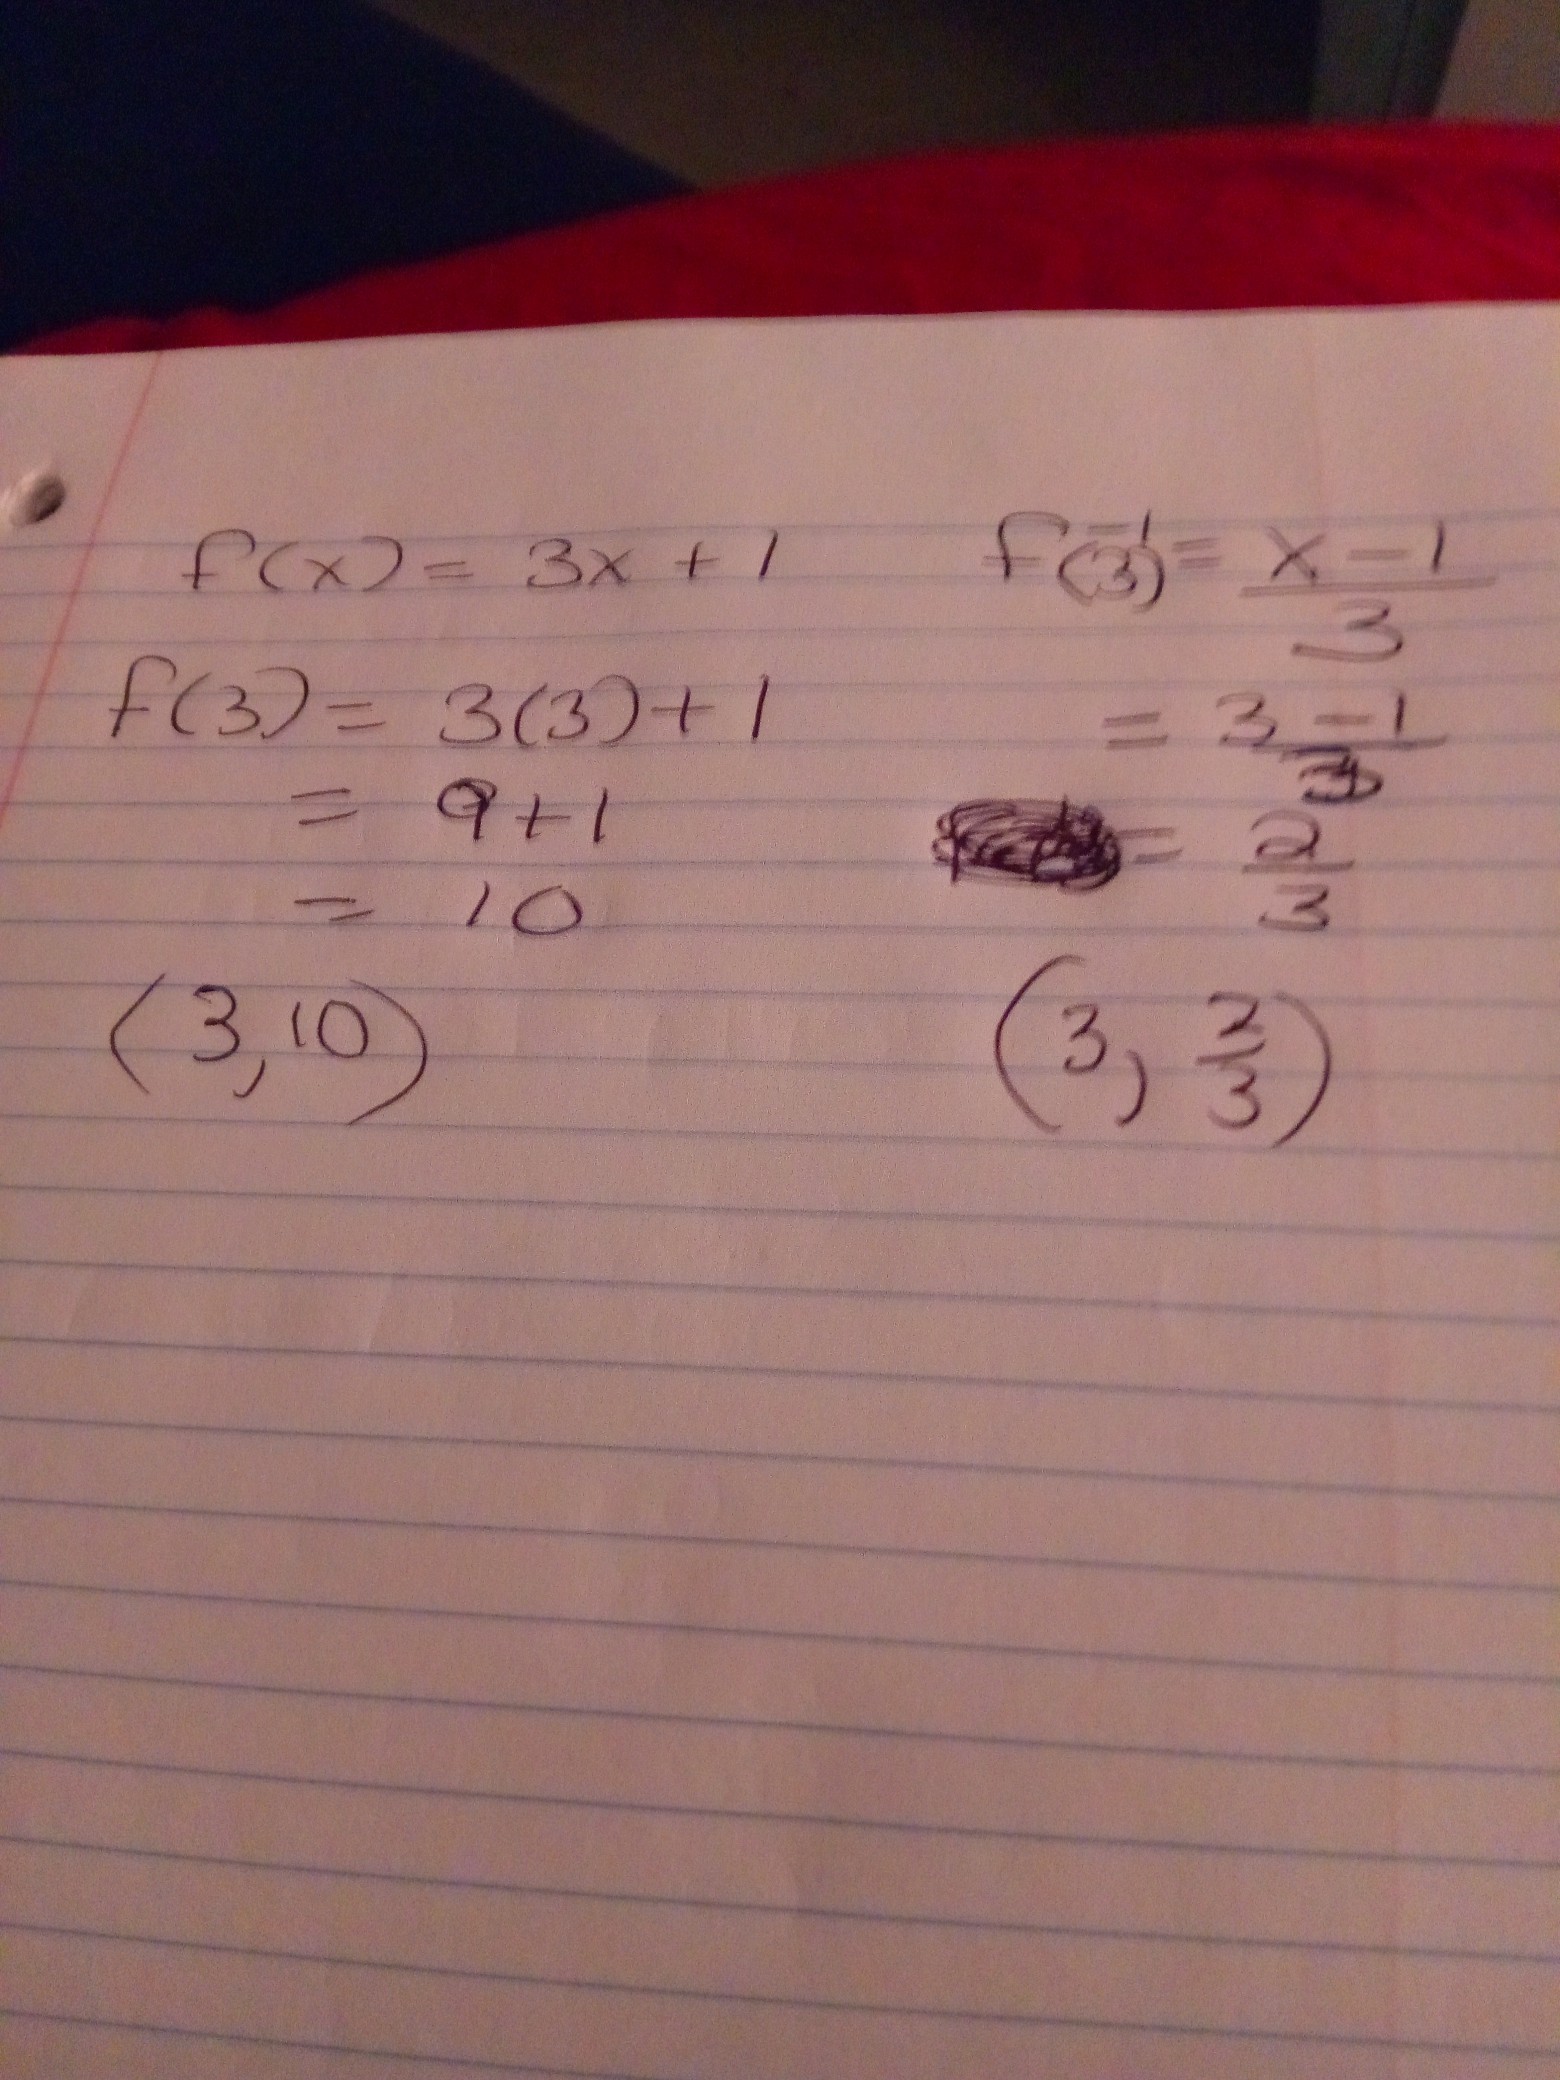 f(x) = 3x + 1
f(3) = 3(3) + 1
= 9 + 1
= 10
(3, 10)
f⁻¹(3) = x - 1 / 3
= 3 - 1 / 3
= 2/3
(3, 2/3)